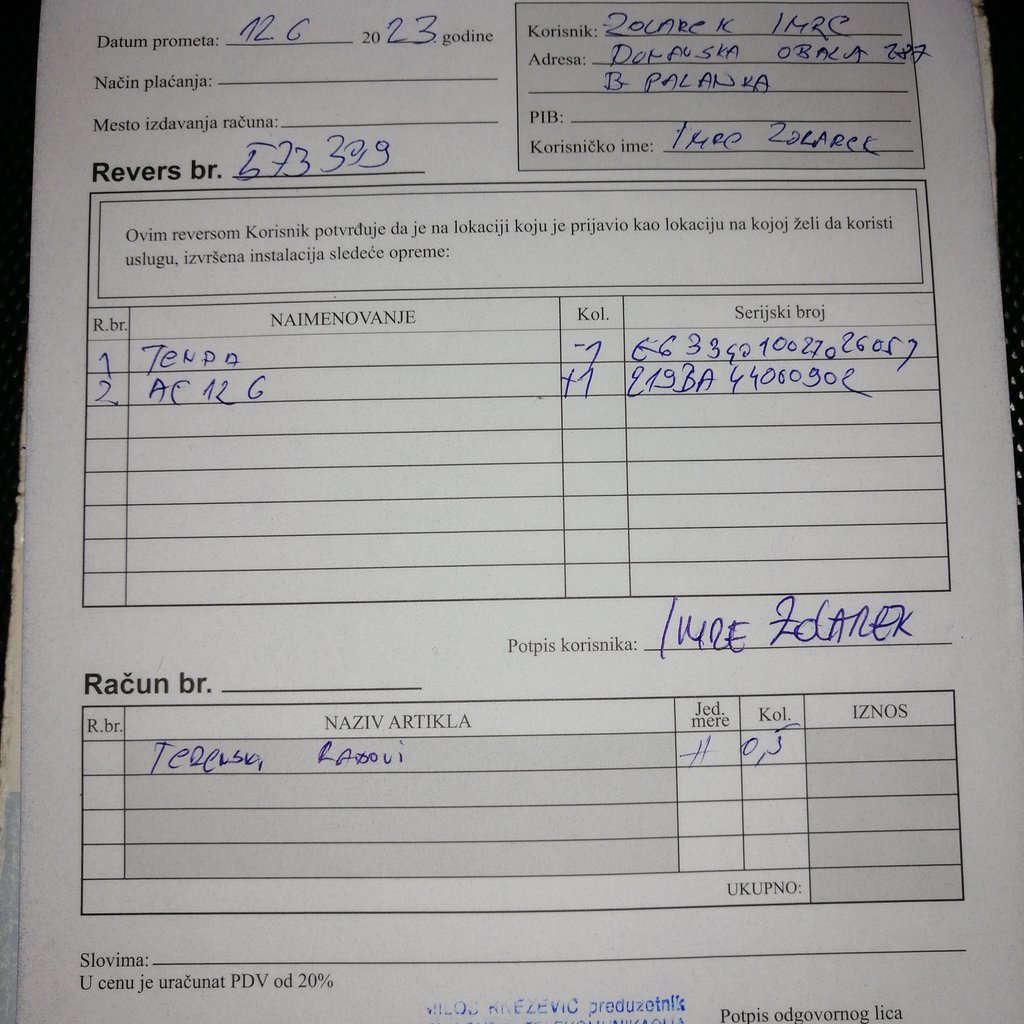 Datum prometa: 12.6 2023. godine
Način plaćanja:
Mesto izdavanja računa:
Revers br. 573399
Korisnik: ZDLAREK IMRE
Adresa: DUNAVSKA OBALA 287
B PALANKA
PIB:
Korisničko ime: IMRE ZDLAREK
Ovim reversom Korisnik potvrđuje da je na lokaciji koju je prijavio kao lokaciju na kojoj želi da koristi
uslugu, izvršena instalacija sledeće opreme:
R.br. NAIMENOVANJE Kol. Serijski broj
1 TENDA -1
2 AC 12 G +1 219BA44000902
Potpis korisnika: IMRE ZDLAREK
Račun br.
R.br. NAZIV ARTIKLA Jed. mere Kol. IZNOS
TERENSKI RADOVI H 0,5
UKUPNO:
Slovima:
U cenu je uračunat PDV od 20%
MILOŠ KNEŽEVIĆ preduzetnik
TELEKOMUNIKACIJA
Potpis odgovornog lica